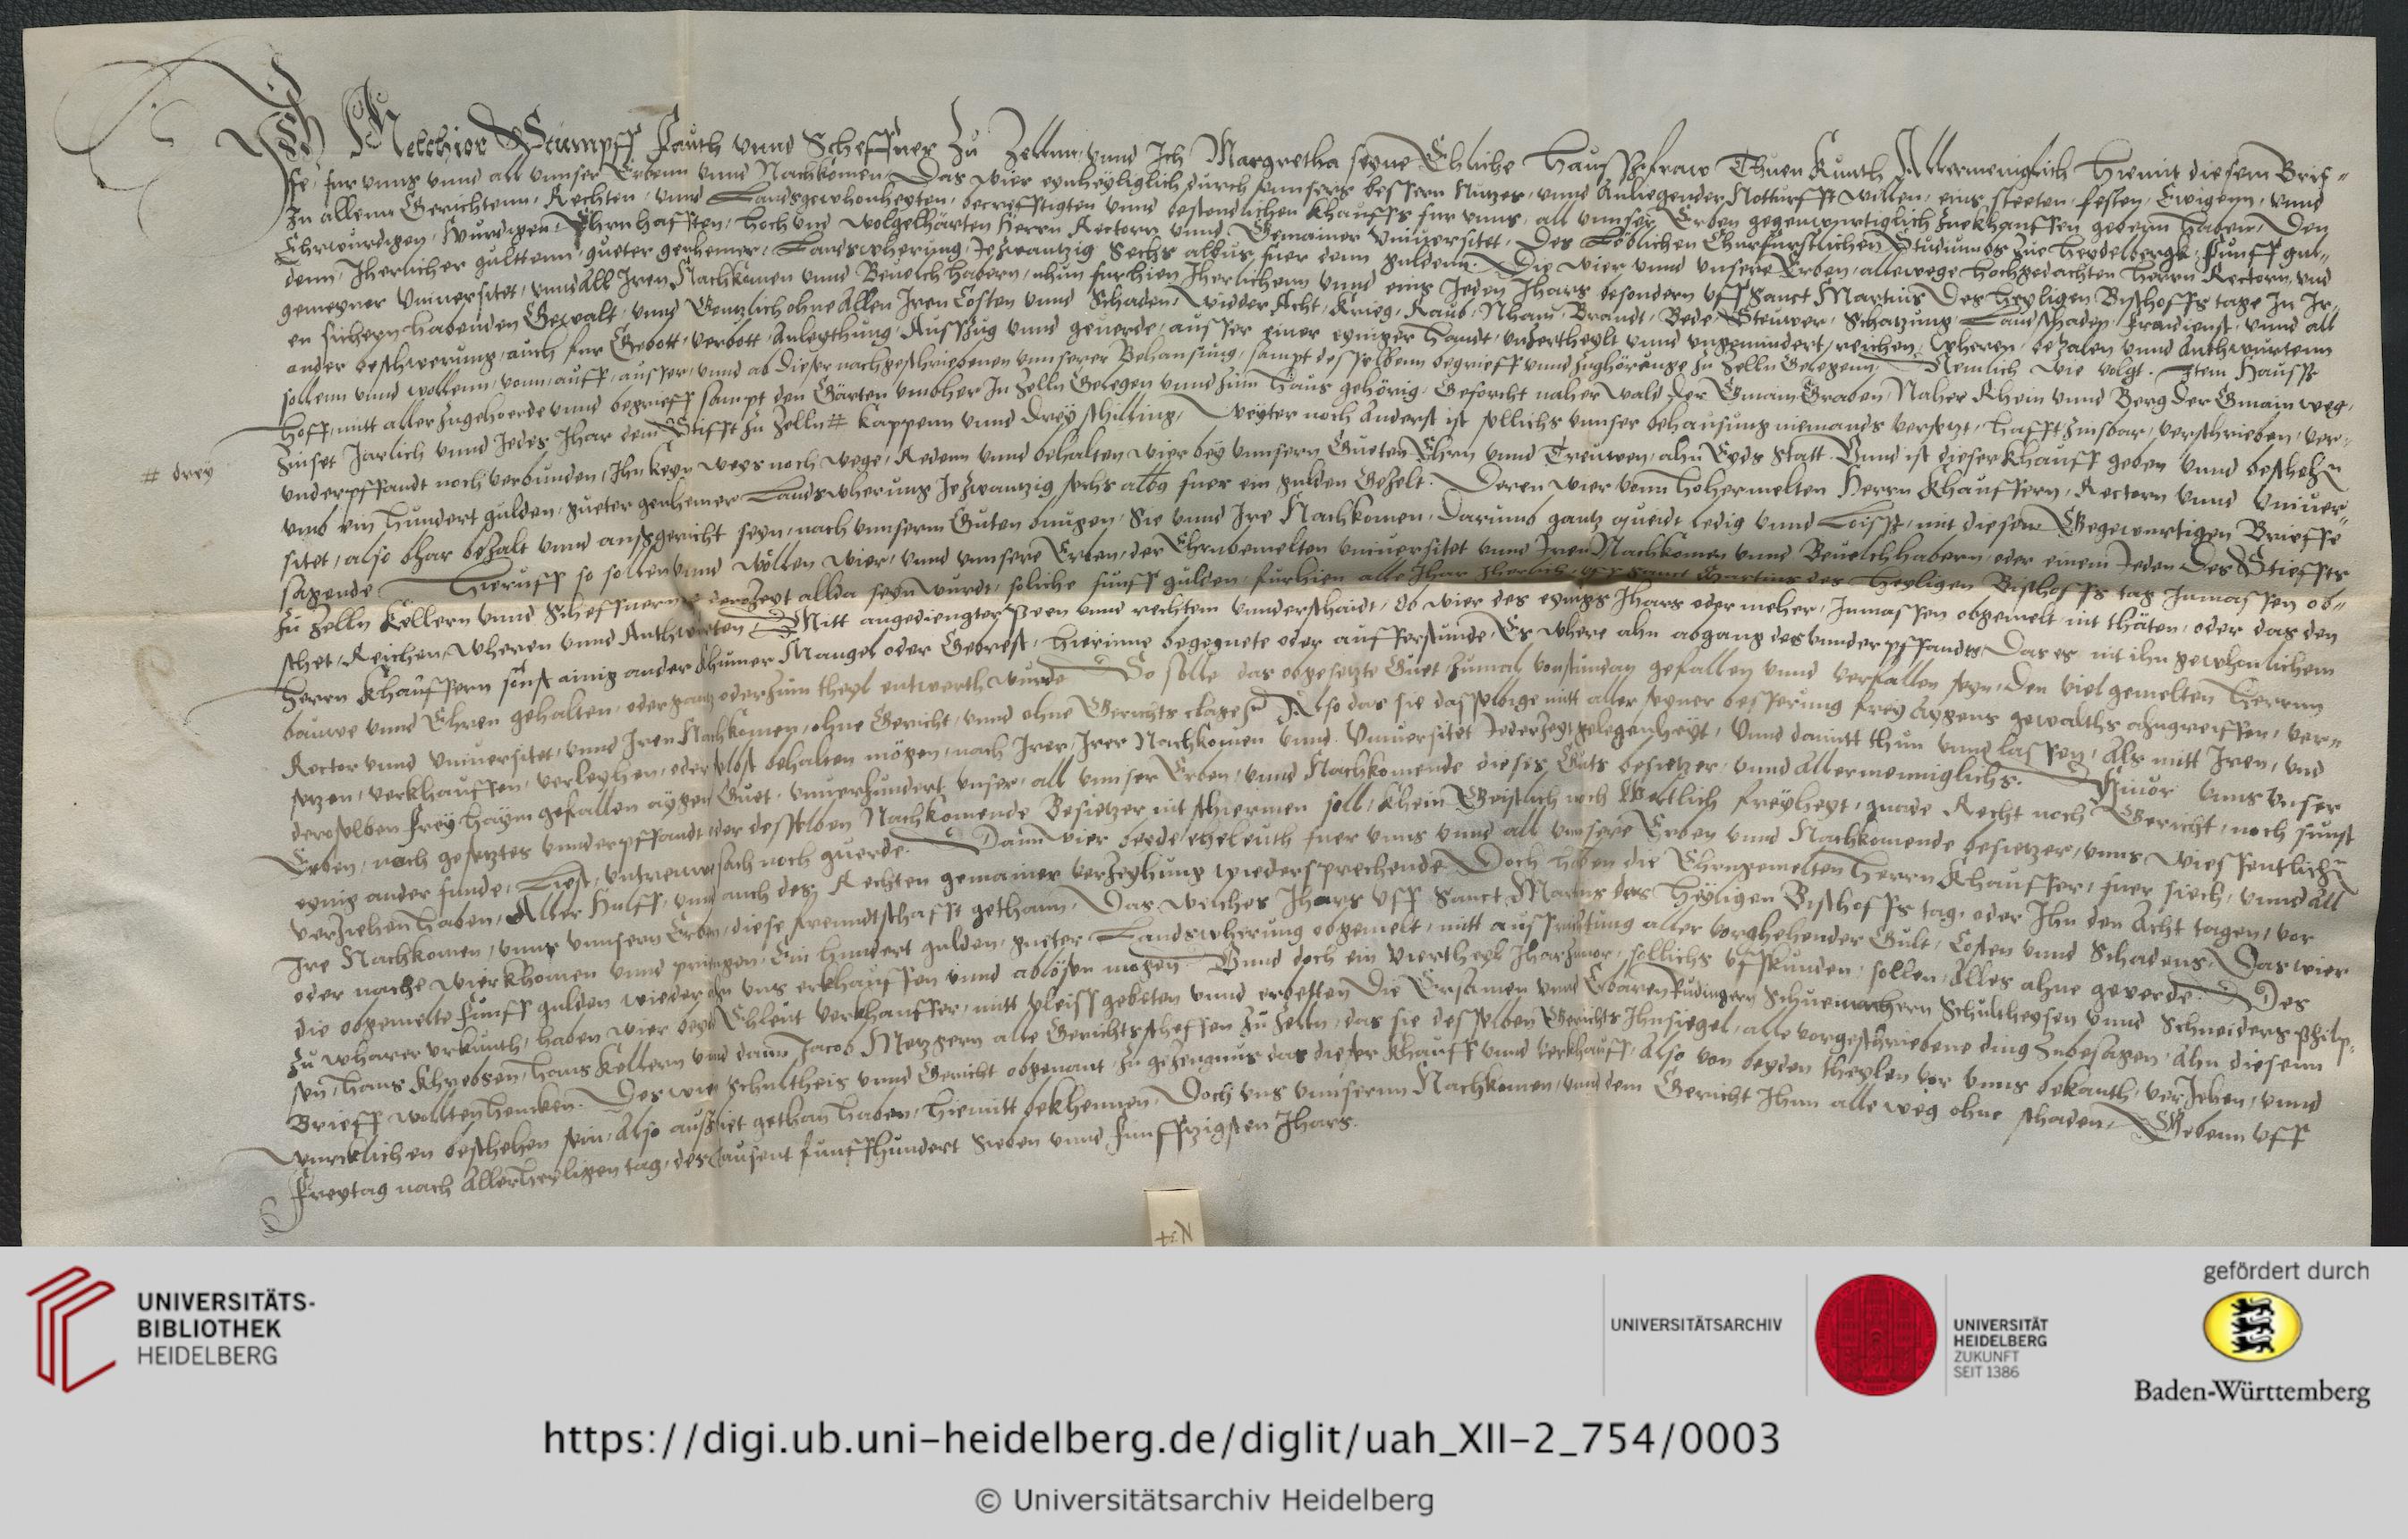 Ich Melchior Stumpff Fauth vnnd Scheffner Zu Zellnn, vnnd Ich Margretha seyne Ehliche Haussfraw Thuen Kunth Allermeniglich hiemit diesem Brif-
fe, fur vnns vnnd all vnnser Erbenn vnnd Nachkomen, Das wier eynhelliglich durch vnnsers bessern Nutzes, vnnd Anliegender Notturfft willen, eins steeten, festen, Ewigenn, vnnd
Zu allenn Gerichtenn, Rechten, vnnd Landsgewhonheyten, becrefftigten vnnd bestendlichen khauffs fur vnns, all vnnser Erben gegenwurtiglich Zuekhauffen gebenn haben, Den
Ehrwurdigen, Wurdigen, Ehrnhafften, hoch vnd wolgelhärten Herrn Rectorn vnnd Gemainer Vniuersitet, Des Löblichen Churfurstlichen Studiumbs Zue Heydelbergk, Funff gul-
denn, Iherlicher gulttenn, gueter genhemer, Landswherung, Ie Zwantzig Sechs albus fuer denn guldenn. Die wier vnnd vnsere Erben, allewege hochgedachten Herrn Rectorn, vnd
gemeyner Vniuersitet, vnnd All Iren Nachkomen vnnd Beuelchhabern, nhun furhien Iherlichenn vnnd eins Jeden Jhars besondern vff Sanct Martins Des heyligen Bischoffs tage In Ir-
en sichern habenden Gewalt, vnnd Gentzlich ohne Allen Iren Costen vnnd Schaden, Widder Acht, Krieg, Raub, Nham, Brandt, Bede, Steuwer, Schatzung, Landschaden, frondienst, vnnd all
ander beschwerung, auch fur Gebott, Verbott, Anleythung, Ausszug vnnd geuerde, ausser einer eyniger handt, vnzertheylt vnnd vngemindert, reichen, wheren, bezalen vnnd Anthwurtenn
sollenn vnnd wollenn, vonn, auff, ausser, vnnd ab dieser nachgeschriebenen vnnserer Behausung, sampt desselbenn begrieff vnnd zughörunge Zu Zelln Gelegenn, Nemlich wie volgt. Item Hauss
hoff, mitt aller zugehoerde vnnd begrieff sampt den Gärten vmbher In Zelln Gelegen vnnd Zum haus gehörig, Geforcht naher Wald der Gmain Graben, Naher Rhein vnnd Berg Der Gmain weg,
Zinset Jarlich vnnd Jedes Jhar dem Stifft Zu Zelln # Kappenn vnnd Drey schilling, Weyter noch Anderst ist sollichs vnnser behausung niemands versetzt, hafft Zinsbar, verschrieben, ver-
# drey
underpffandt noch verbunden, Ihn keyn weys noch wege, Redenn vnnd behalten wier bey vnnsern Gueten Ehrn vnnd Treuwen, ahn Eyds Statt. Vnnd ist dieser Khauff geben vnnd beschehn
vmb ein Hundert gulden, gueter genhemer Landswherung Ie Zwantzig sechs albg fuer ein gulden Gezelt. Deren wier vonn hohermelten Herrn Khauffern, Rectorn vnnd Vniuer-
sitet, also bhar bezalt vnnd aussgericht seyn, nach vnnserm Guten bnugen, Sie vnnd Ire Nachkomen, Darumb gantz queidt ledig vnnd Loiss, mit diesem Gegenwurtigen Brieffe
sagende. Hieruff so sollen vnnd wöllen wier, vnnd vnnsere Erben, der Ehrnbemelten Vniuersitet vnnd Iren Nachkomen vnnd Beuelchhabern, oder einem Jeden Des Stieffts
Zu Zelln Kellern vnnd Scheffnern, derozeyt allda seyn wurdt, soliche funff gulden, furhien alle Jhar Jherlich, vff Sanct Martins des heyligen Bischoffs tag Inmassen ob-
stehet, Reichen, Wheren vnnd Anthwrten. Mitt angediengter Peen vnnd rechtem vnnderschaidt, Ob wier des eynigs Jhars oder meher, Inmassen obgemelt, nit thäten, oder das den
Herrn Khauffern sonst ainig ander Khumer Mangel oder Gebrest, hierinne begegnete oder aufferstunde, Es where ahn abgang des vnnderpffandts, Das es nit ihn gewhonlichem
bauwe vnnd Ehren gehalten, oder gantz oder Zum theyl entwerth wurde. So solle das obgesetzte Guet Zumal vonstundan gefallen vnnd verfallen seyn, Den vielgemelten Herrnn
Rector vnnd Vniuersitet, vnnd Iren Nachkomen, ohne Gericht, vnnd ohne Gerichts clagen, Also das sie dasselbige mitt aller seyner besserung frey Aygens gewalths ahngreiffen, ver-
setzen, verkhauffen, verleyhen, oder selbst behalten mögen, nach Irer, Irer Nachkomen vnnd Vniuersitet Jederzeyt gelegenheyt, Vnnd damitt thun vnnd lassen, Als mitt Iren, vnd
deroselben frey haym gefallen aygen Guet, vnuerhindert vnser, all vnnser Erben, vnnd Nachkomende dieses Guts besietzer, vnnd Allermenniglichs. Hieuor vnns vnser
Erben, noch gesetztes vnnderpffandt oder desselben Nachkomende Besietzer nit schiermen soll, khein Geistlich noch Weltlich freyheyt, gnade Recht noch Gericht, noch sunst
eynig ander funde, List, vntreuwe, sach noch geuerde. Dann wier beede eheleuth fuer vnns vnnd all vnnsere Erben vnnd Nachkomende besietzer, vnns wiessentlich
verziehen haben, Aller Hulff, vnnd auch des Rechten gemainer Verzeyhung widersprechende. Doch haben die Ehrngemelten Herrn Khauffer, fuer siech, vnnd All
Ire Nachkomen, vnns vnnsern Erben, diese freundtschafft gethann, Das welches Jhars vff Sanct Martins des heyligen Bischoffs tag, oder Ihn den Acht tagen, vor
oder nache wier khomen vnnd pringen, Ein hundert gulden, gueter Landswherung obgemelt, mitt aussrichtung aller vorghehender Gult, Costen vnnd Schadens, Das wier
die obgemelte funff gulden wieder ahn vns erkhauffen vnnd ablösen mogen. Vnnd doch ein viertheyl Jhar Zuuor, sollichs vffkunden, sollen, Alles ahne geverde. Des
Zu wharer vrkunth, haben wier beyd Ehleut verkhauffer, mitt vleiss gebeten vnnd erbetten Die Ersamen vnnd Erbaren Rudingern Schuemachern Schultheysen vnnd Schneiders Philip-
sen, Hans Khrebsen, Hans Kellern vnnd dann Jacob Metzgern alle Gerichtsscheffen Zu Zelln, das sie desselben Gerichts Ihnsiegel, alle vorgeschriebene ding Zubesagen, Ahn diesenn
Brieff wollten hencken. Des wir Schultheis vnnd Gericht obgenant, Zu gezeugnus das dieser Khauff vnnd verkhauff, Also von beyden theylen vor vnns bekanth, verjehen, vnnd
wurcklichen beschehen sein, Also gethan haben, hiemitt bekhennen, Doch vns vnnsernn Nachkomen, vnnd dem Gericht Ihnn alle weg ohne schaden, Gebenn vff
Freytag nach Allerheyligen tag, des tausent funffhundert Sieben vnnd funfftzigsten Jhars.
UNIVERSITÄTS-
BIBLIOTHEK
HEIDELBERG
UNIVERSITÄTSARCHIV
UNIVERSITÄT
HEIDELBERG
ZUKUNFT
SEIT 1386
gefördert durch
Baden-Württemberg
https://digi.ub.uni-heidelberg.de/diglit/uah_XII-2_754/0003
© Universitätsarchiv Heidelberg